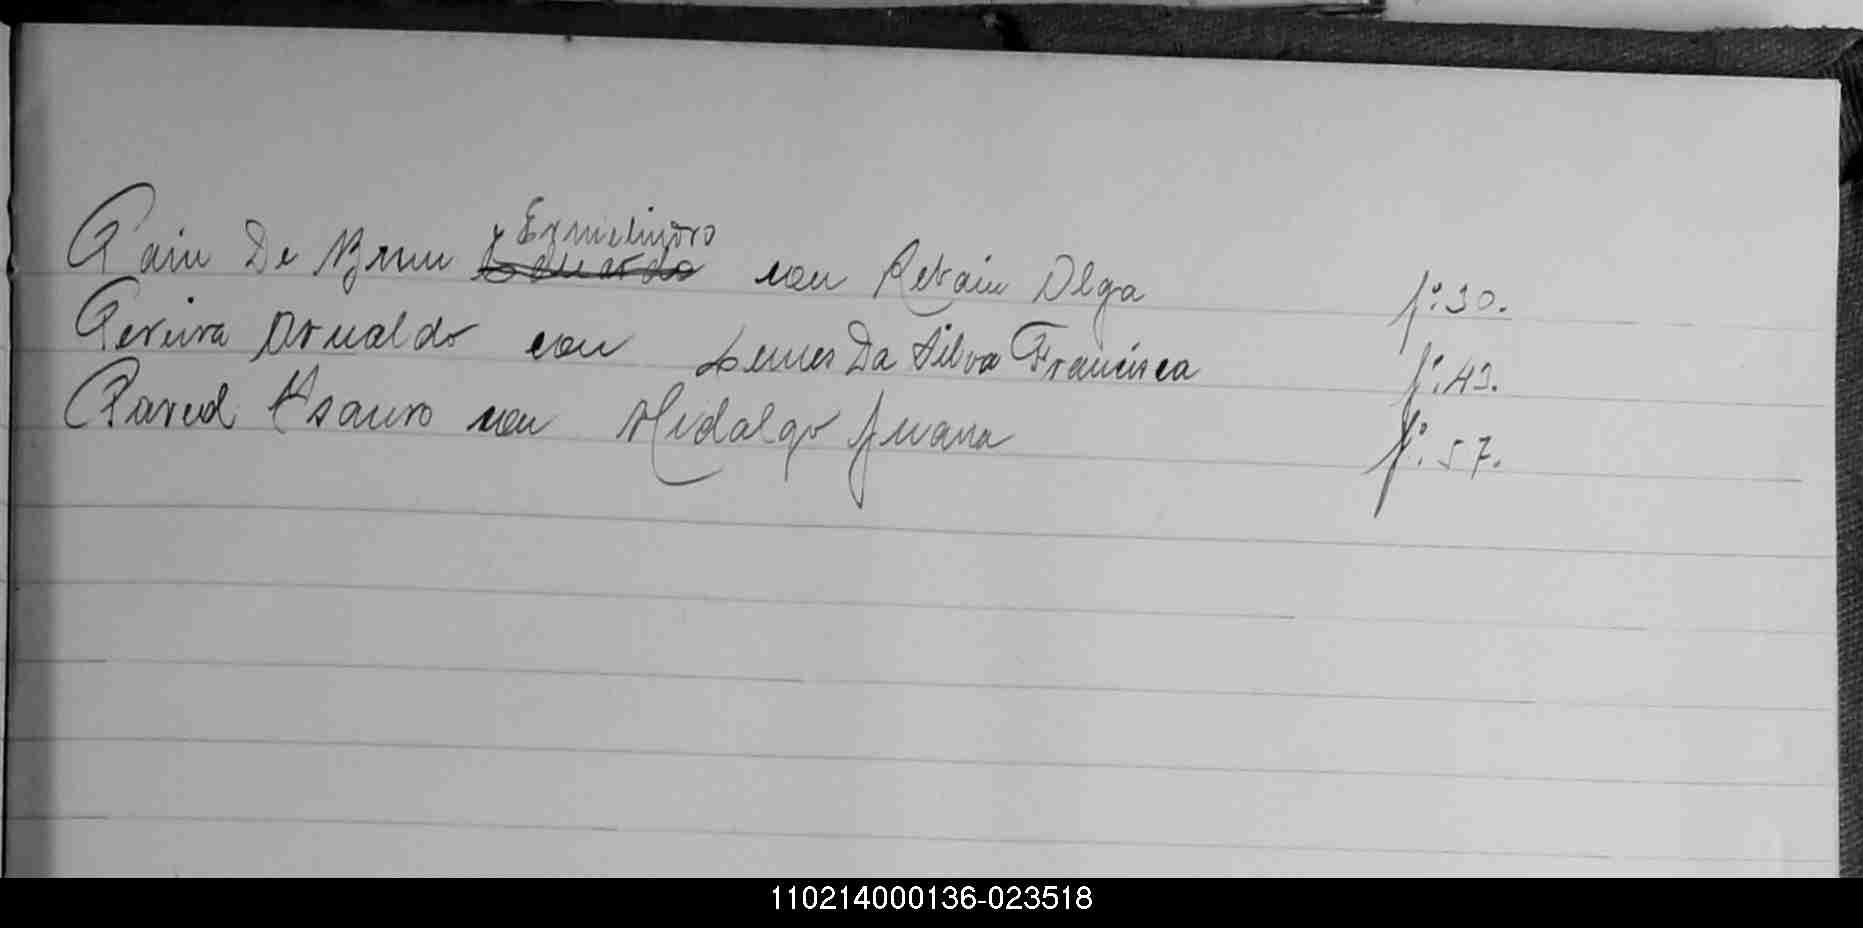 Pain De Brum Ermelindro con Retain Olga fº: 30.
Pereira Arnaldo con Lemes Da Silva Francisca fº: 43.
Pared Isauro con Hidalgo Juana fº: 57.
110214000136-023518